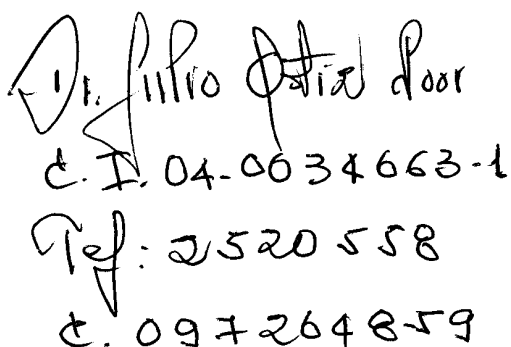 Dr. Julio
C.I. 04-0034663-1
Tef: 2520558
C. 097264859